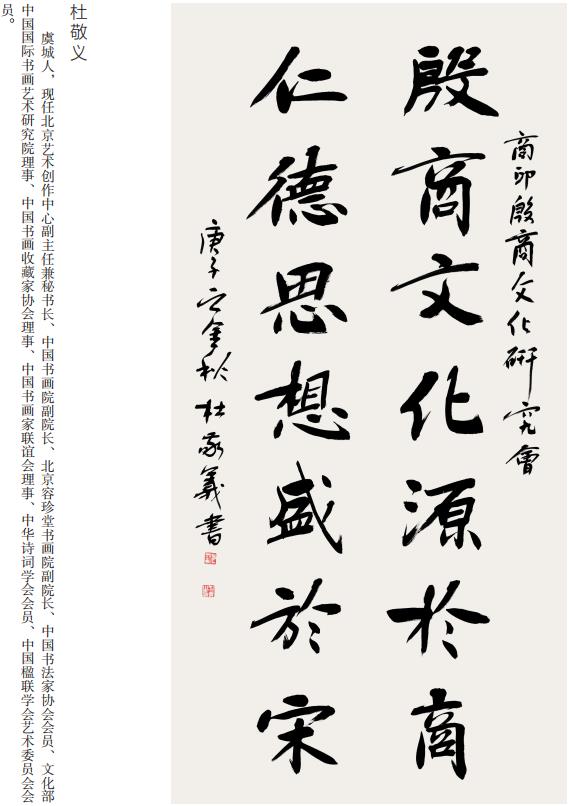 商邱殷商文化研究會
殷商文化源於商
仁德思想盛於宋
庚子之金秋杜敬義書
杜敬义
虞城人，现任北京艺术创作中心副主任兼秘书长、中国书画院副院长、北京容珍堂书画院副院长、中国书法家协会会员、文化部
中国国际书画艺术研究院理事、中国书画收藏家协会理事、中国书画家联谊会理事、中华诗词学会会员、中国楹联学会艺术委员会会
员。